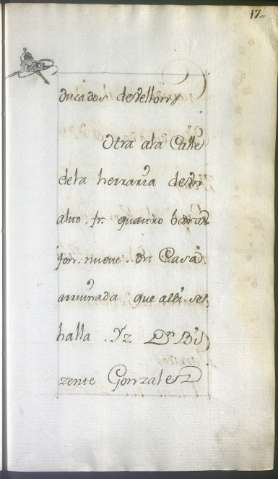 17
ducados de vellon
Otra a la Calle
de la herraria de
alto fr. quatro
jon. nueve. en Casa
arruinada que alli se
halla. Yz Dn Bi
zente Gonzalez